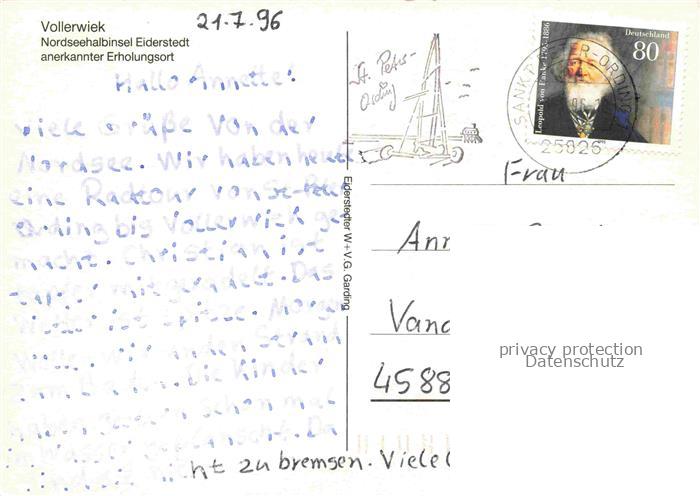 21.7.96
Vollerwiek
Nordseehalbinsel Eiderstedt
anerkannter Erholungsort
Hallo Annette!
viele Grüße von der
Nordsee. Wir haben heute
eine Radtour von St. Peter
Ording bis Vollerwiek ge
macht. Christian ist
mitgeradelt. Das
ist Spitze. Morgen
wir an den Strand
zum Die Kinder
haben schon mal
im Wasser geplanscht. Da
ht zu bremsen. Viele
Eiderstedter W+V.G. Garding
St. Peter-
Ording
Deutschland
80
Leopold von Ranke 1795-1886
SANKT PETER-ORDING
25826
Frau
Ann
Vand
4588
privacy protection
Datenschutz